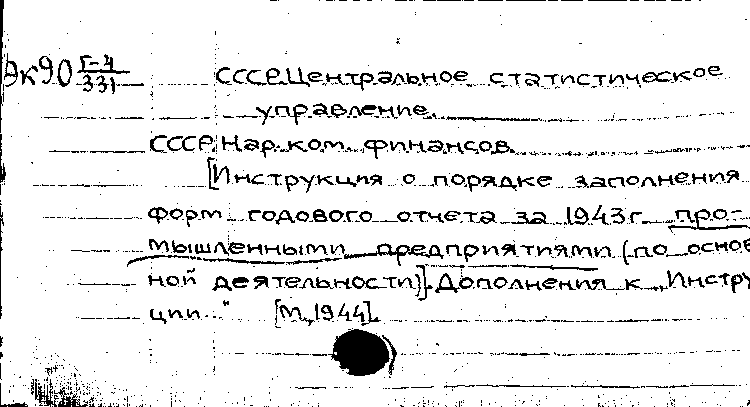 Эк90 Г-4/331
СССР. Центральное статистическое
управление.
СССР. Нар. ком. финансов.
[Инструкция о порядке заполнения
форм годового отчета за 1943 г. про-
мышленными предприятиями (по основ
ной деятельности)]. Дополнения к „Инстру
ции..." [М., 1944].